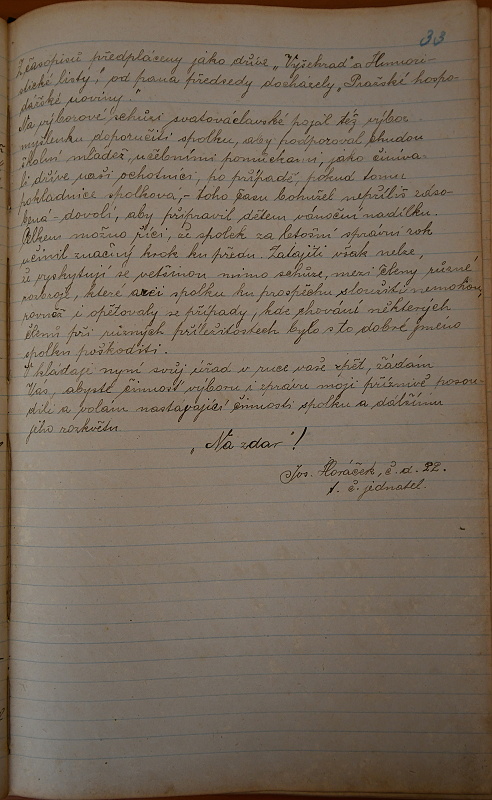 33
Z časopisů předpláceny jako dříve „Vyšehrad" a Humori-
stické listy", od pana předsedy docházely „Pražské hospo-
dářské noviny."
Na výborové schůzi svatováclavské pojal též výbor
myšlenku doporučiti spolku, aby podporoval chudou
školní mládež učebními pomůckami, jako činíva-
li dříve naši ochotníci, po případě, pokud tomu
pokladnice spolková, – toho času bohužel nepříliš záso-
bená – dovolí, aby připravil dětem vánoční nadílku.
Celkem možno říci, že spolek za letošní správní rok
učinil značný krok ku předu. Zatajiti však nelze,
že vyskytují se většinou mimo schůze, mezi členy různé
rozbroje, které arci spolku ku prospěchu sloužiti nemohou,
rovněž i opětovaly se případy, kde chování některých
členů při různých příležitostech bylo s to dobré jméno
spolku poškoditi.
Vkládaje nyní svůj úřad v ruce vaše zpět, žádám
Vás, abyste činnost výboru i zprávu moji příznivě posou-
dili a volám nastávající činnosti spolku a dalšímu
jeho rozkvětu
„Na zdar"!
Jos. Horáček, č. d. 22.
t. č. jednatel.